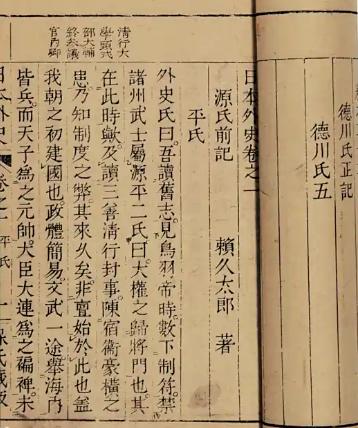 德川氏正記
德川氏五
日本外史卷之一
源氏前記 賴久太郎 著
平氏
清行大
學頭式
部大輔
終參議
宮内卿
外史氏曰。吾讀舊志。見鳥羽帝時。數下制符。禁
諸州武士屬源平二氏。曰。大權之歸將門也。其
在此時歟。及讀三善清行封事。陳宿衞豪橫之
患。乃知制度之弊。其來久矣。非亶始於此也。蓋
我朝之初建國也。政體簡易。文武一途。擧海内
皆兵。而天子爲之元帥。大臣大連爲之褊裨。未
日本外史 卷之一 平氏 一 賴氏藏板